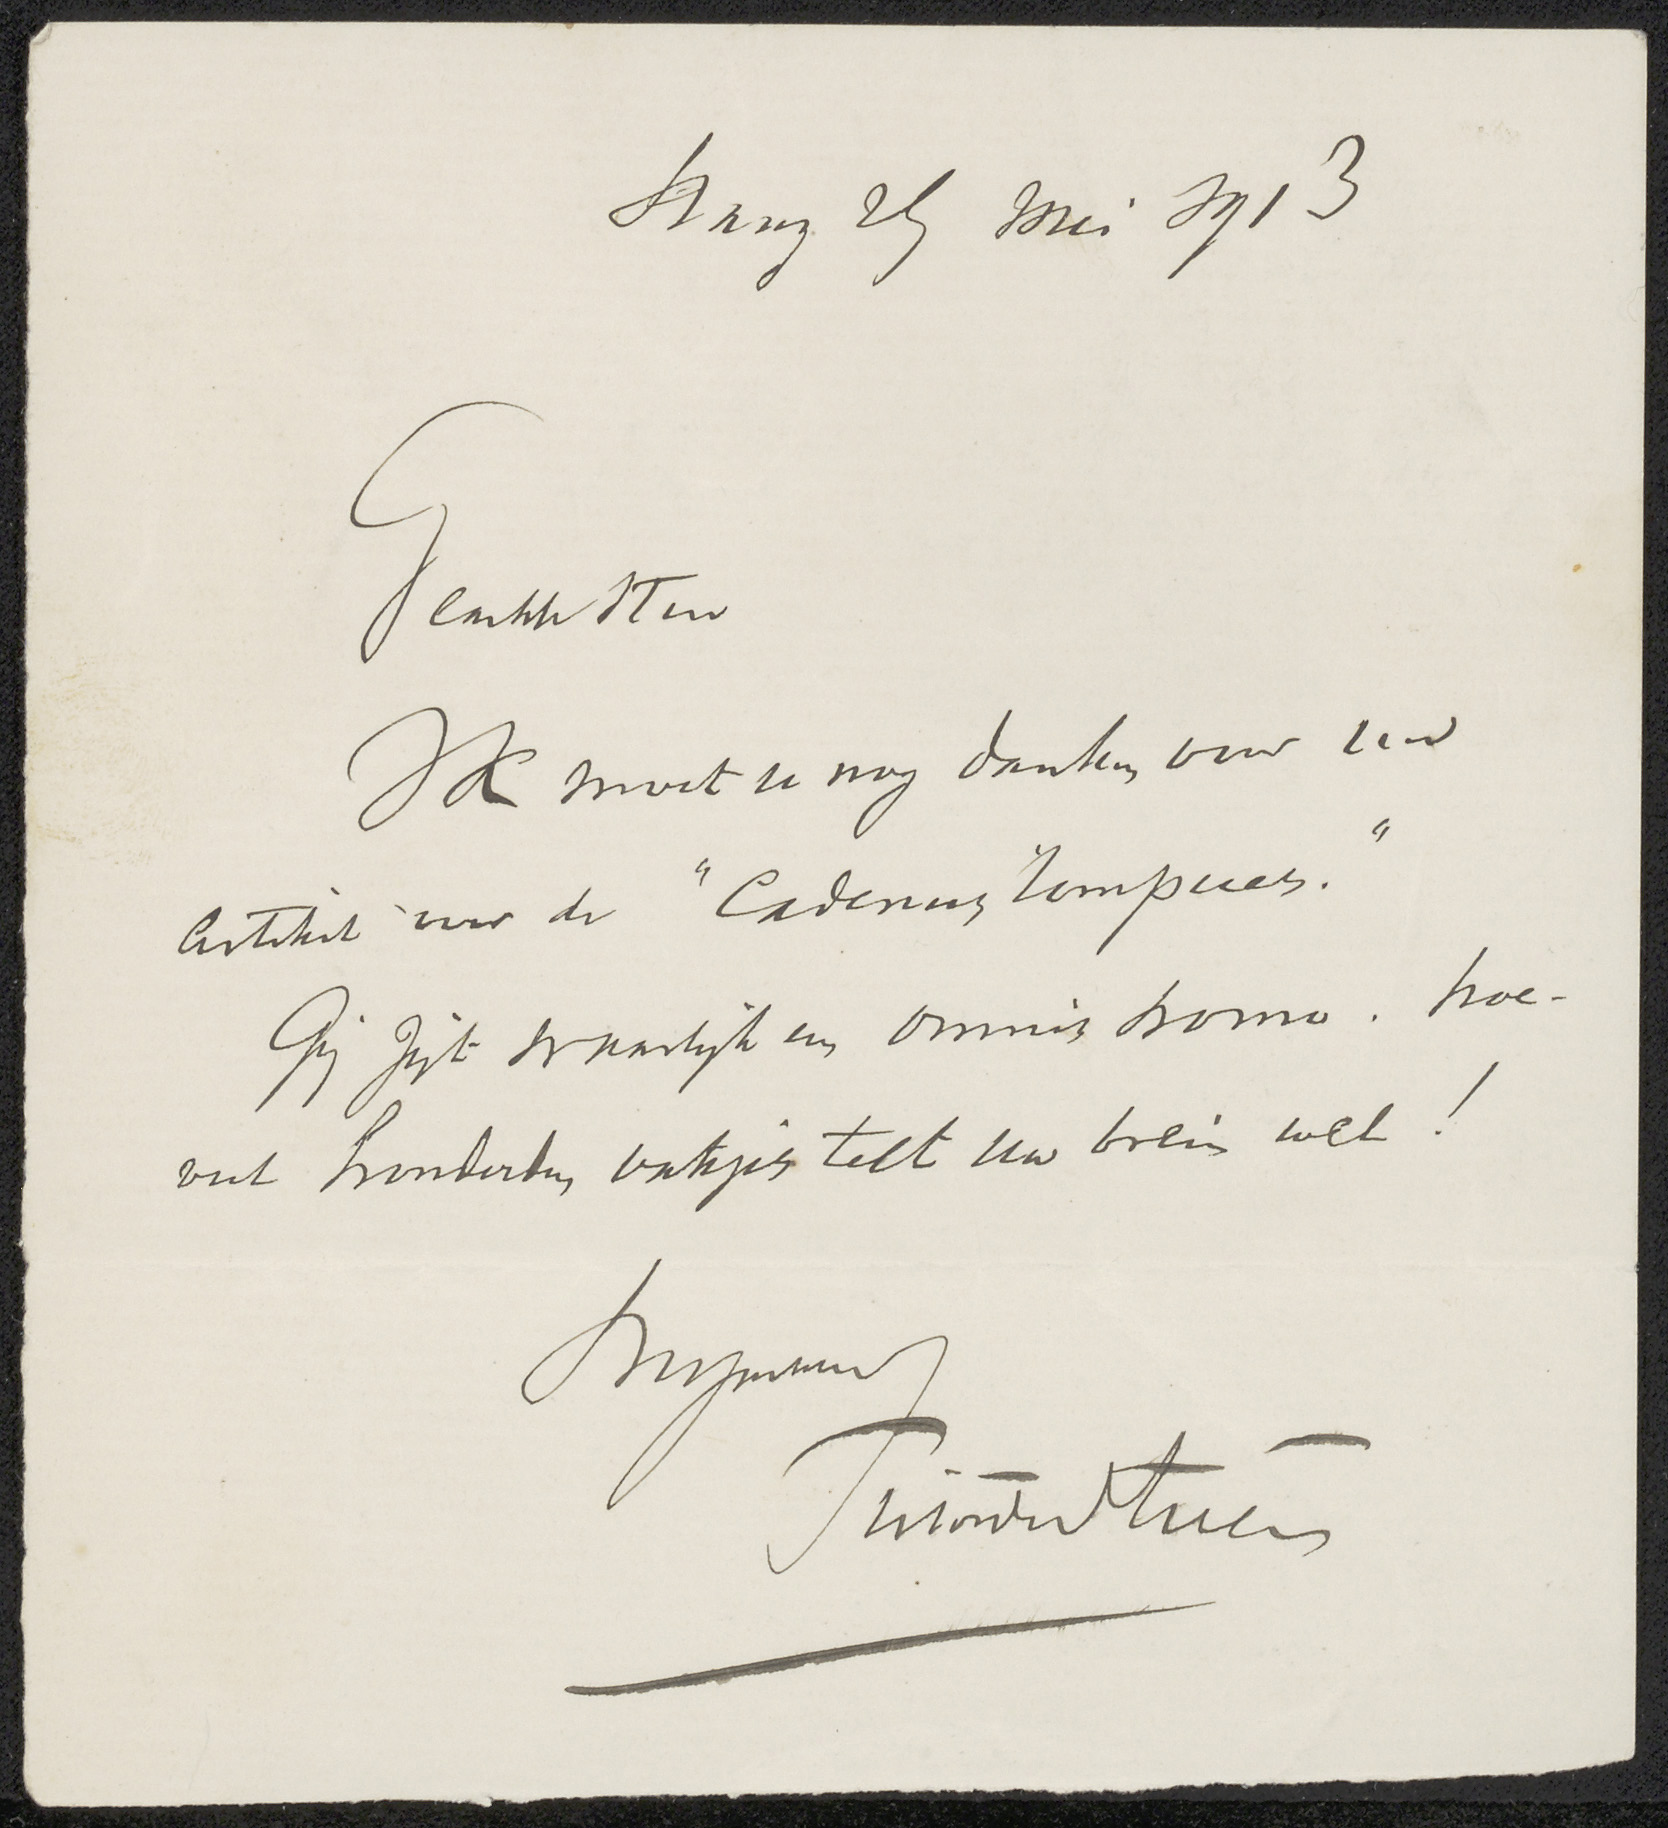 Haag 25 Mei 1913
Geachte Heer
Ik moet u nog danken voor uw
artikel over de "Cadenus
Gij zijt waarlijk een omnis homo. hoe-
veel honderden vakjes telt uw brein wel!
Hoogachtend